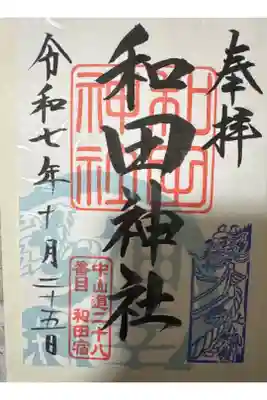 奉拝
和田神社
和田
神社
令和七年十月二十五日
中山道二十八
番目 和田宿